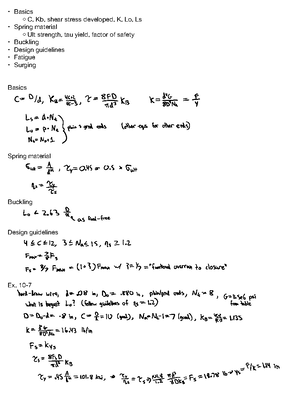 • Basics
○ C, Kb, shear stress developed, K, Lo, Ls
• Spring material
○ Ult strength, tau yield, factor of safety
• Buckling
• Design guidelines
• Fatigue
• Surging
Basics
C = D/d, K_B = (4C+2)/(4C-3), τ = 8FD/πd³ K_B K = d⁴G/8D³N_a = F/y
L_s = d·N_t
L_o = p·N_a ground ends (other eqns for other ends)
N_a = N_t - 1
Spring material
S_ut = A/d^m, τ_y = 0.45 or 0.5 × S_ut
n_s = τ_y/τ_s
Buckling
L_o < 2.63 D/α
Design guidelines
4 ≤ C ≤ 12, 3 ≤ N_a ≤ 15, n_s ≥ 1.2
F_max = 7/8 F_s
F_s = 8/7 F_max = (1+ξ) F_max w/ ξ = 1/7 = "fractional overrun to closure"
Ex. 10-7
hard-drawn wire, d = .08 in, D_o = .880 in, plain/grnd ends, N_t = 8, from table
what is largest L_o? (follow guidelines of n_s = 1.2)
D = D_o - d = .8 in, C = D/d = 10 (good), N_a = N_t - 1 = 7 (good), K_B = 1.135
K = d⁴G/8D³N_a = 16.43 lb/in
F_s = K y_s
τ_s = 8F_sD/πd³ K_B